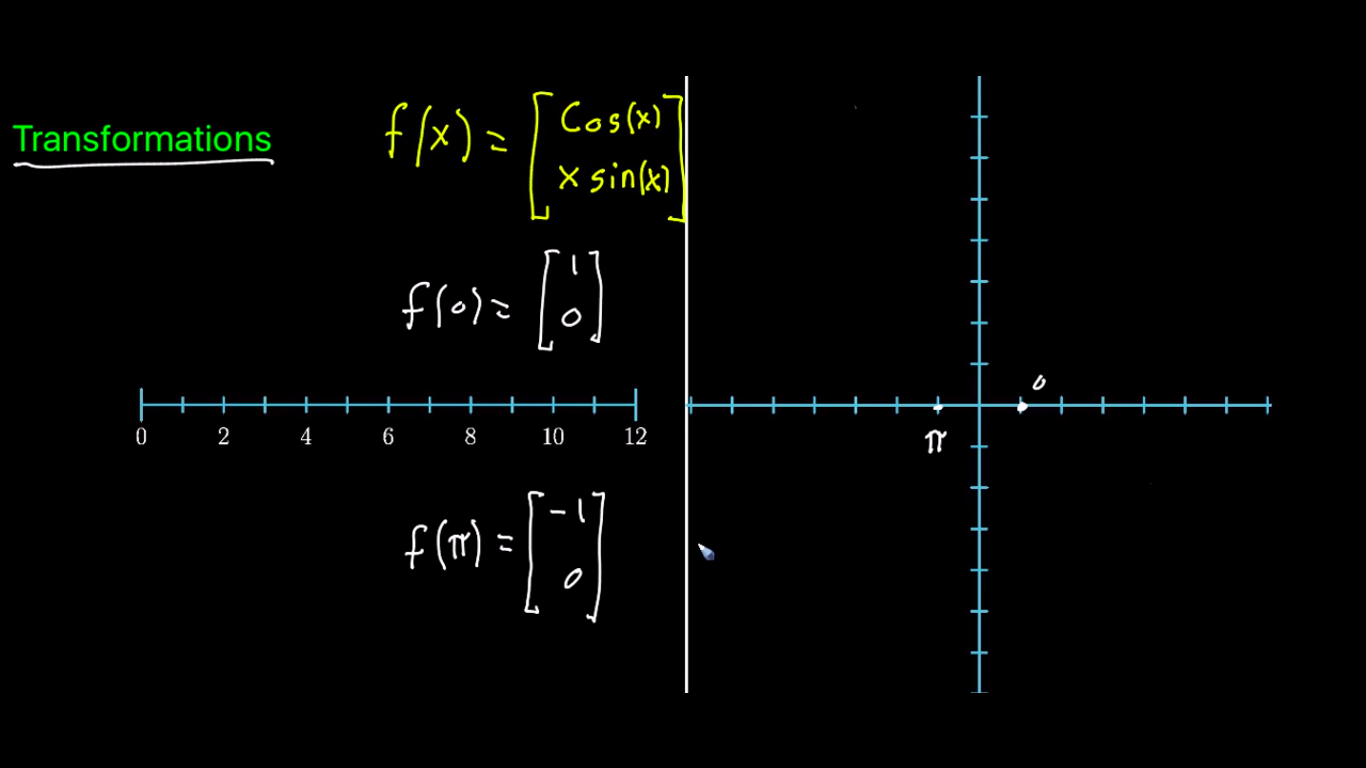 Transformations
f(x) = [ Cos(x)
x sin(x) ]
f(0) = [ 1
0 ]
0
0 2 4 6 8 10 12
π
f(π) = [ -1
0 ]